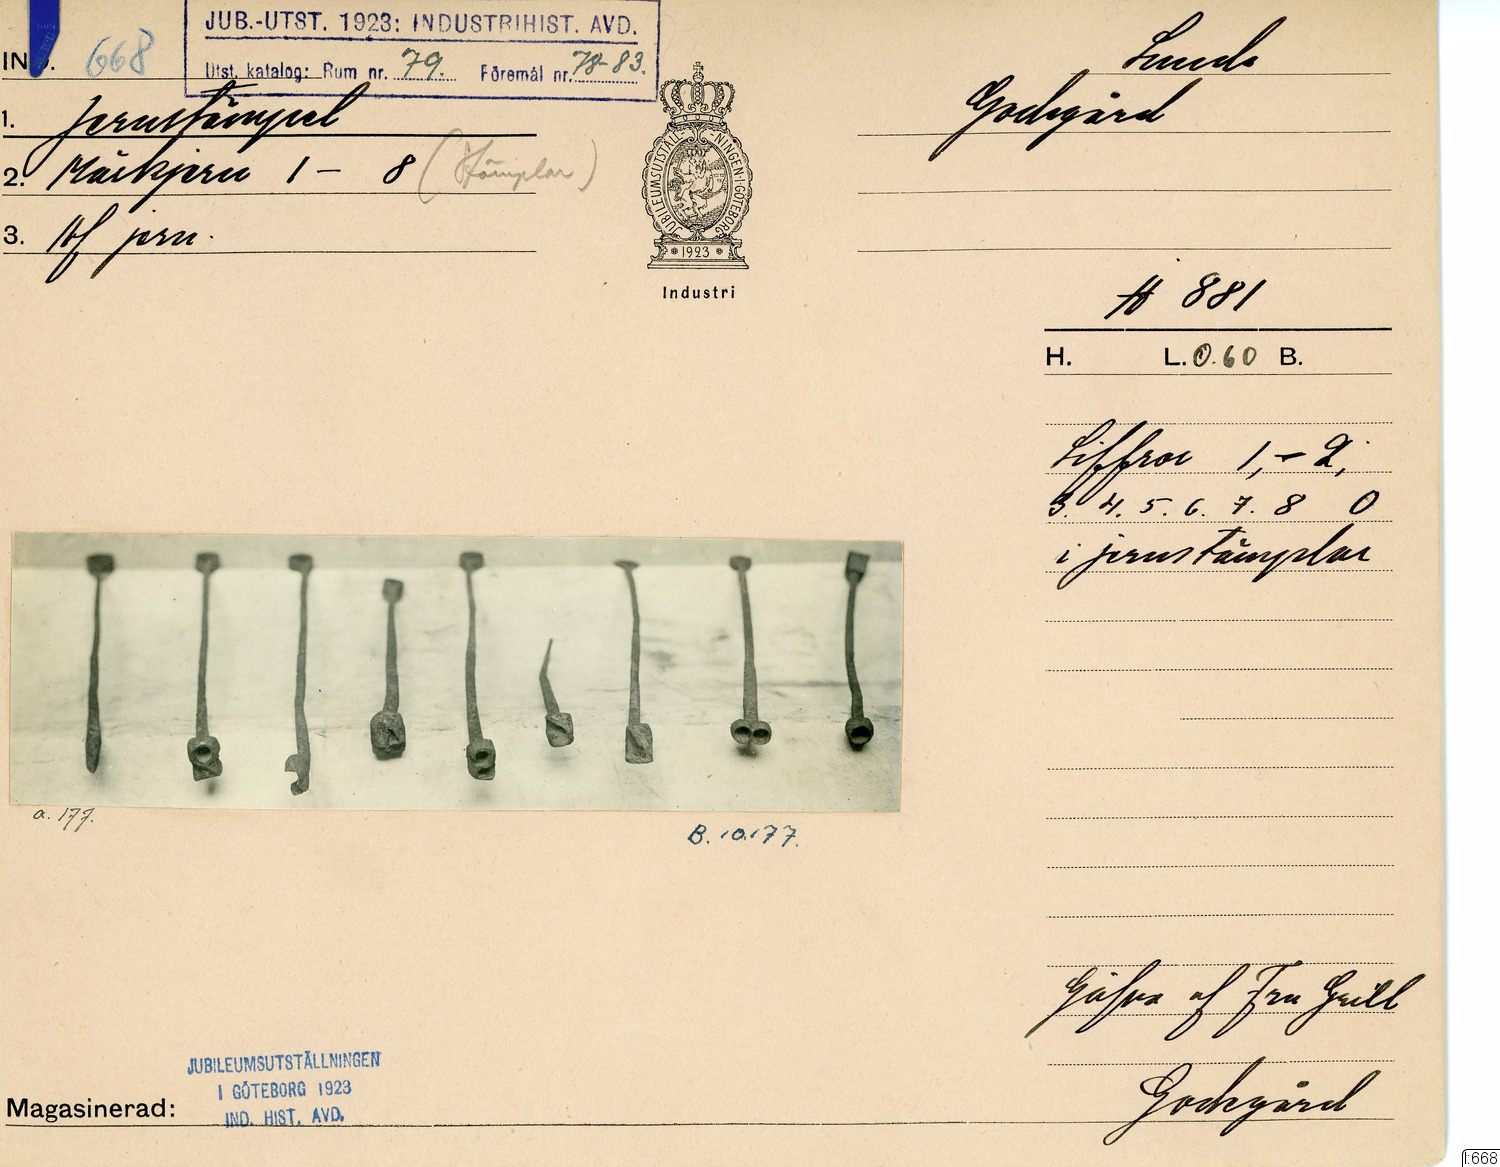 JUB.-UTST. 1923: INDUSTRIHIST. AVD.
Utst. katalog: Rum nr. 79. Föremål nr. 78-83.
IN 668
1. Jernstämpel
2. Märkjern 1 – 8 (Stämplar)
3. Af jern.
JUBILEUMSUTSTÄLLNINGEN I GÖTEBORG
* 1923 *
Industri
Lunds
Godegård
H 881
H. L. 0.60 B.
Siffror 1, – 2,
3. 4. 5. 6. 7. 8 0
i jernstämplar
a. 177.
B. 10.177.
Gåfva af Fru Grill
Godegård
JUBILEUMSUTSTÄLLNINGEN
I GÖTEBORG 1923
IND. HIST. AVD.
Magasinerad:
I:668